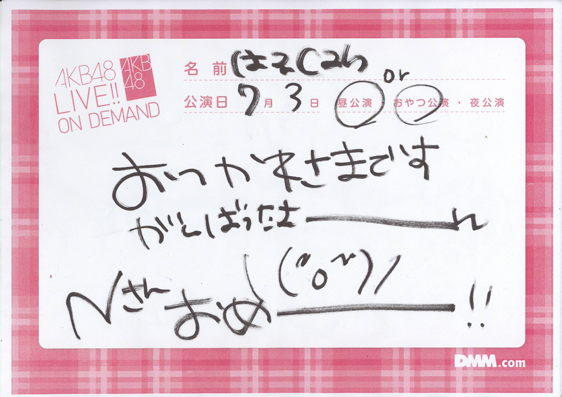 AKB48
LIVE!!
ON DEMAND
AKB
48
名前 はるごん
or
公演日 7月3日 昼公演 おやつ公演・夜公演
おつかれさまです
がんばったよーん
Nさんおめ\(^o^)/ー!!
DMM.com